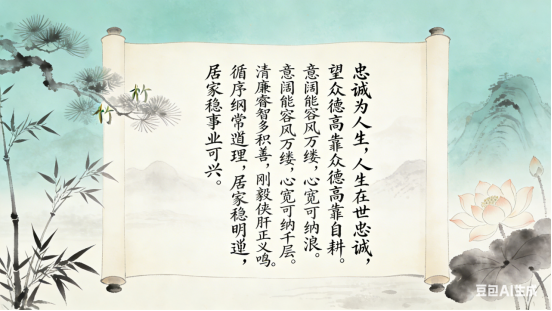 忠诚为人生，人生在世忠诚，
望众德高靠众德高靠自耕。
意阔能容风万缕，心宽可纳浪。
意阔能容风万缕，心宽可纳千层。
清廉睿智多积善，刚毅侠肝正义鸣。
循序纲常道理，居家稳明
居家稳事业可兴。
竹
竹
豆包AI生成